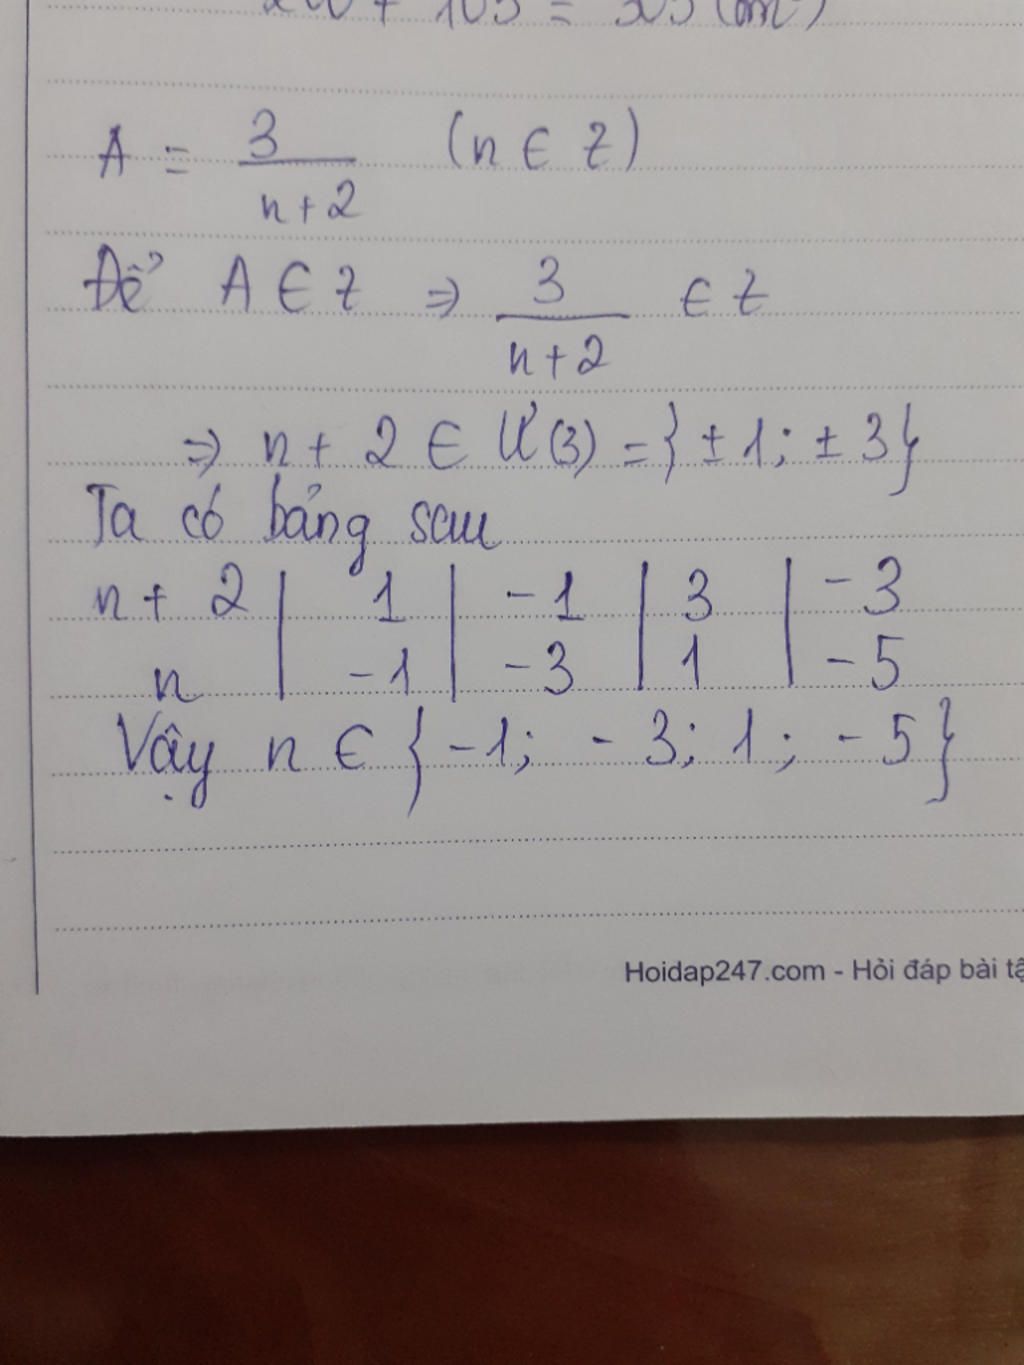 + 105 = 305 (m
A = 3/(n+2) (n ∈ Z)
Để A ∈ Z ⇒ 3/(n+2) ∈ Z
⇒ n + 2 ∈ Ư(3) = {±1; ±3}
Ta có bảng sau
n + 2 | 1 | -1 | 3 | -3
n | -1 | -3 | 1 | -5
Vậy n ∈ {-1; -3; 1; -5}
Hoidap247.com - Hỏi đáp bài tậ